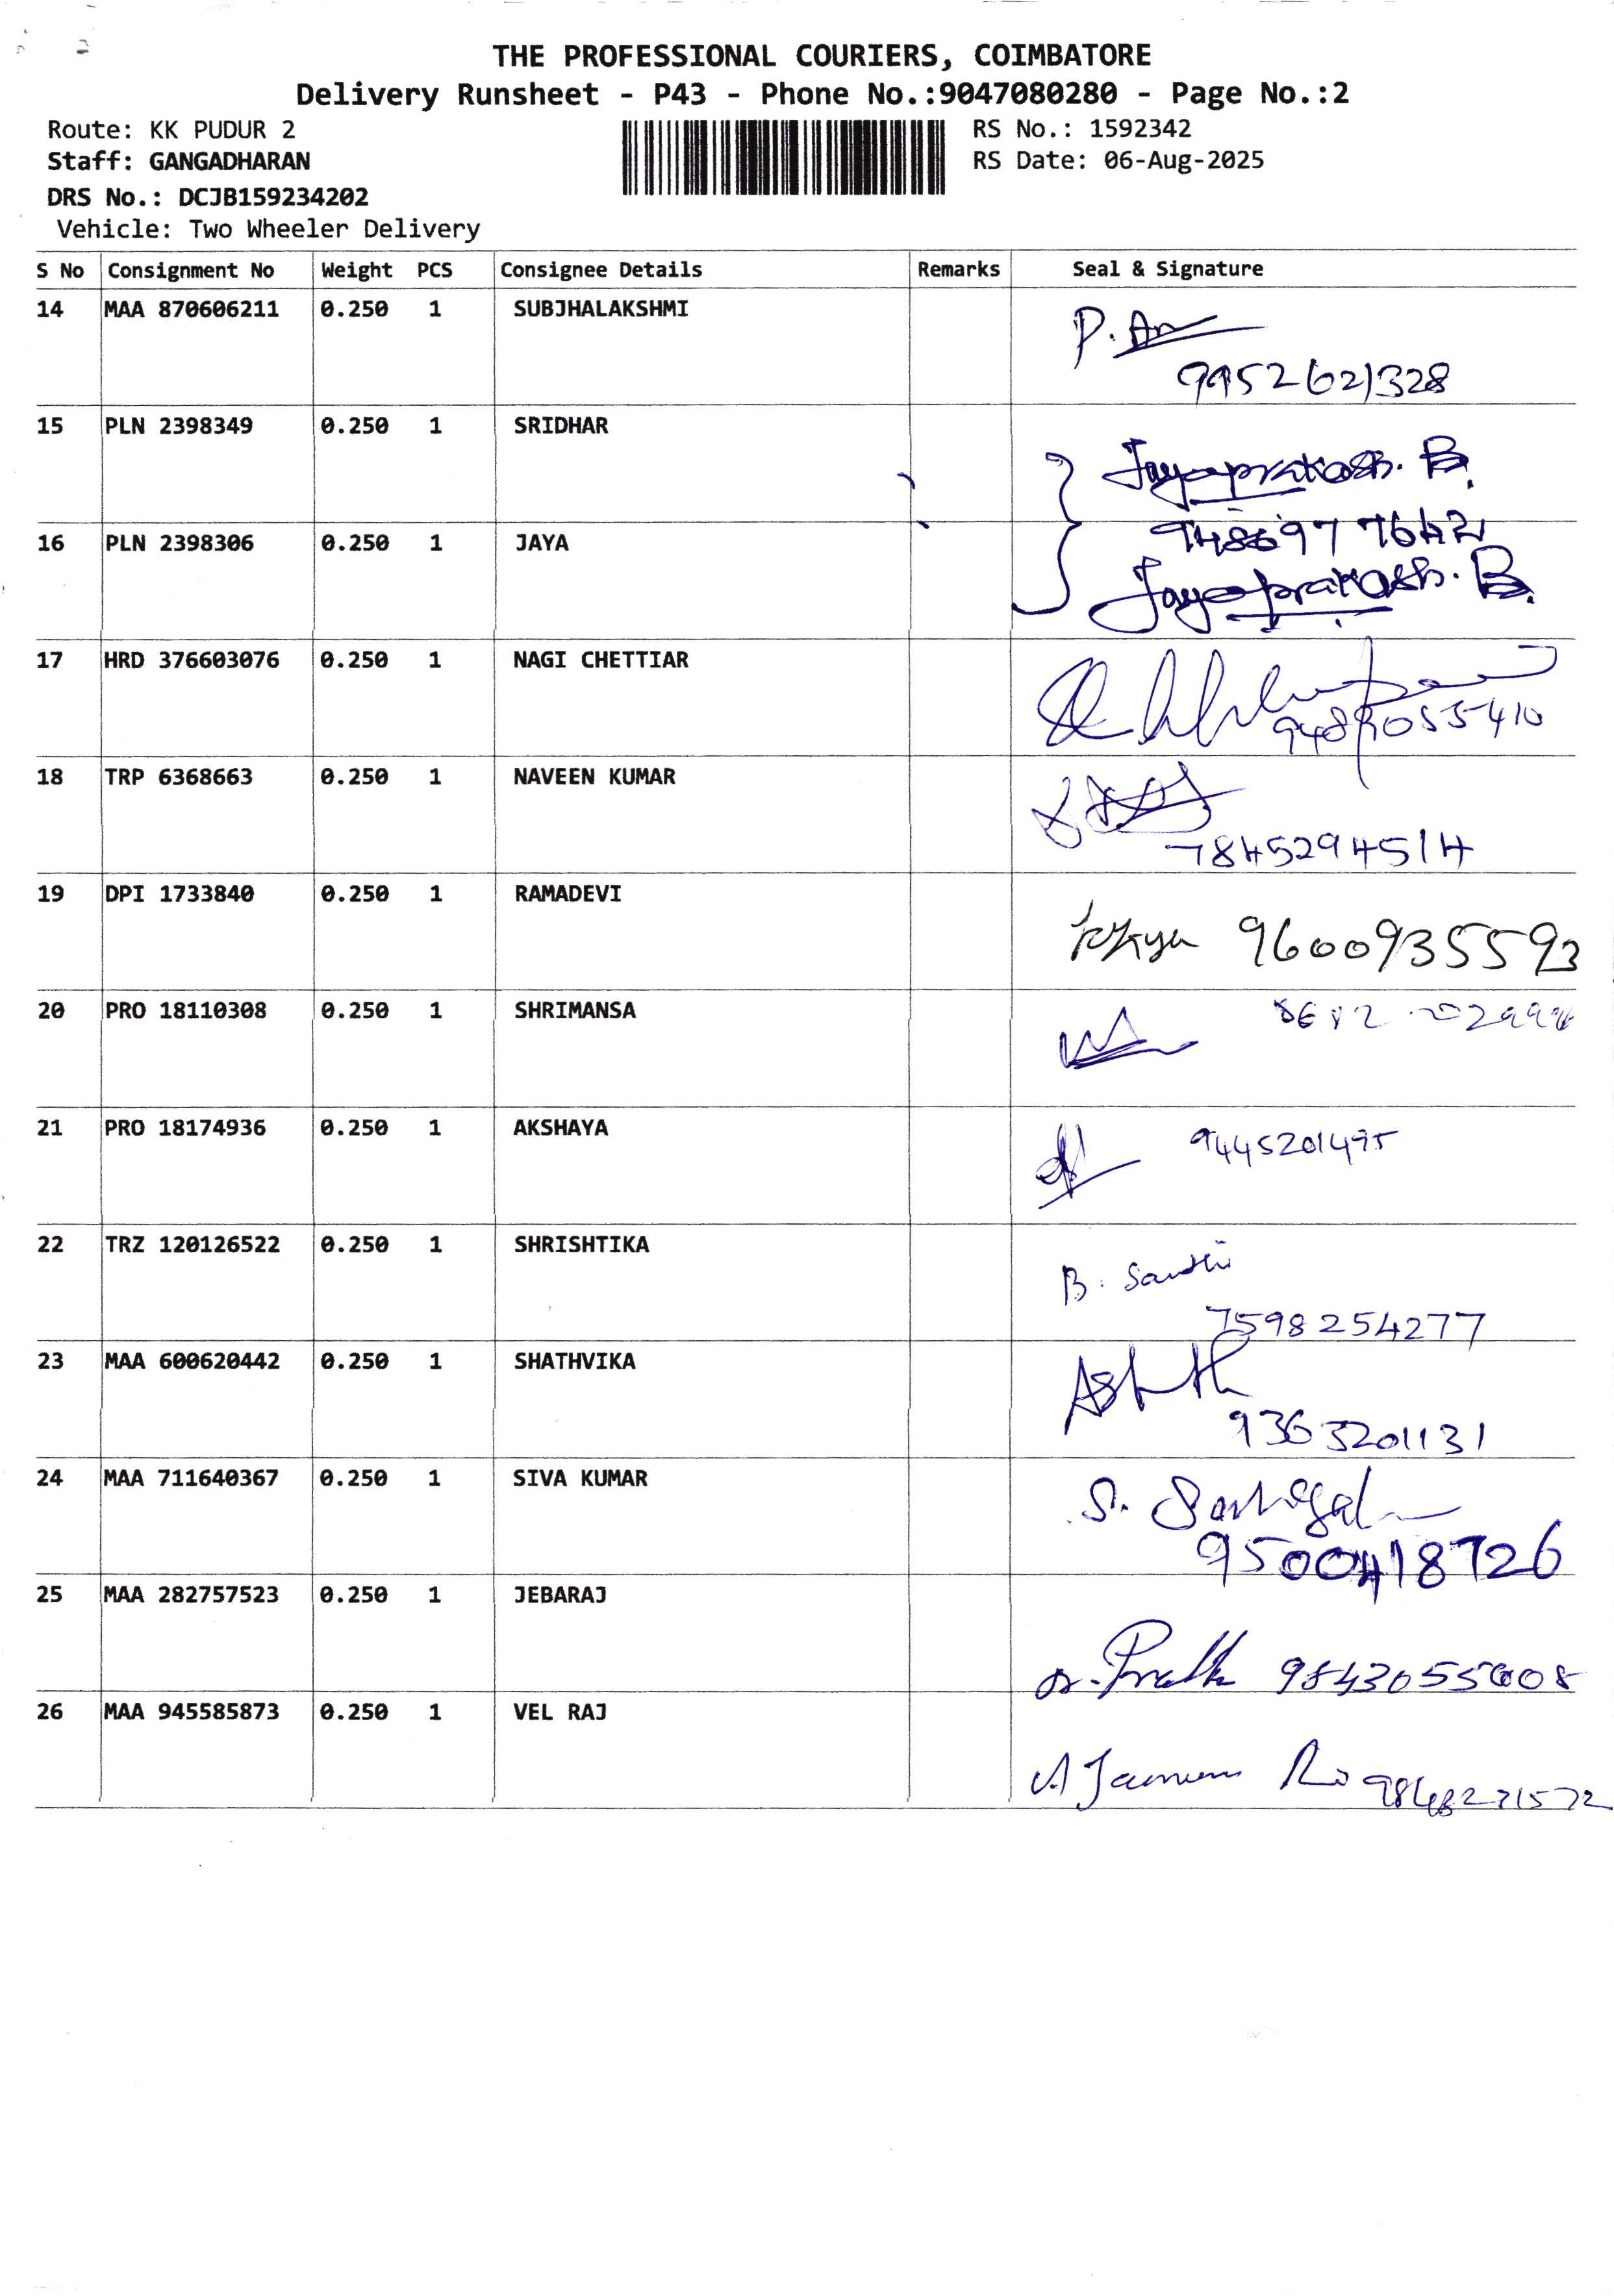 THE PROFESSIONAL COURIERS, COIMBATORE
Delivery Runsheet - P43 - Phone No.:9047080280 - Page No.:2
Route: KK PUDUR 2
RS No.: 1592342
Staff: GANGADHARAN
RS Date: 06-Aug-2025
DRS No.: DCJB159234202
Vehicle: Two Wheeler Delivery
S No Consignment No Weight PCS Consignee Details Remarks Seal & Signature
14 MAA 870606211 0.250 1 SUBJHALAKSHMI
9952621328
15 PLN 2398349 0.250 1 SRIDHAR
Jayaprakash. B.
16 PLN 2398306 0.250 1 JAYA
Jayaprakash. B.
17 HRD 376603076 0.250 1 NAGI CHETTIAR
18 TRP 6368663 0.250 1 NAVEEN KUMAR
7845294514
19 DPI 1733840 0.250 1 RAMADEVI
9600935593
20 PRO 18110308 0.250 1 SHRIMANSA
21 PRO 18174936 0.250 1 AKSHAYA
9445201495
22 TRZ 120126522 0.250 1 SHRISHTIKA
B. Santhi
7598254277
23 MAA 600620442 0.250 1 SHATHVIKA
9363201131
24 MAA 711640367 0.250 1 SIVA KUMAR
9500418726
25 MAA 282757523 0.250 1 JEBARAJ
26 MAA 945585873 0.250 1 VEL RAJ